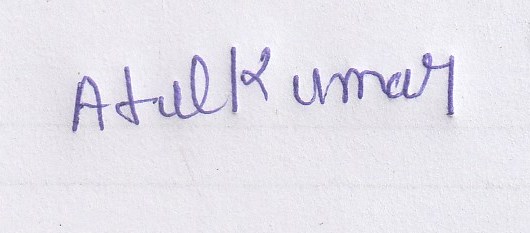 Atul Kumar